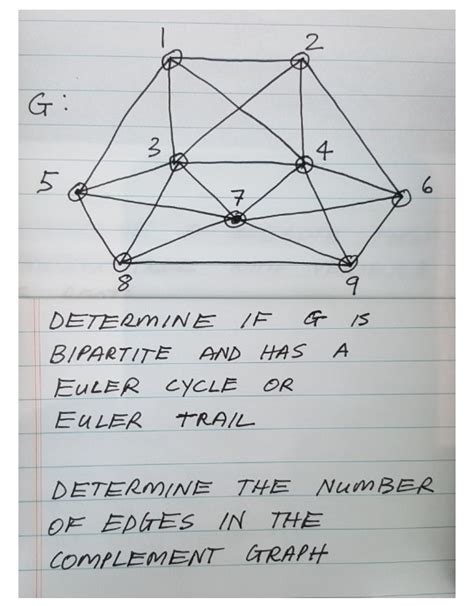 1 2
G:
3 4
5 7 6
8 9
DETERMINE IF G IS
BIPARTITE AND HAS A
EULER CYCLE OR
EULER TRAIL
DETERMINE THE NUMBER
OF EDGES IN THE
COMPLEMENT GRAPH